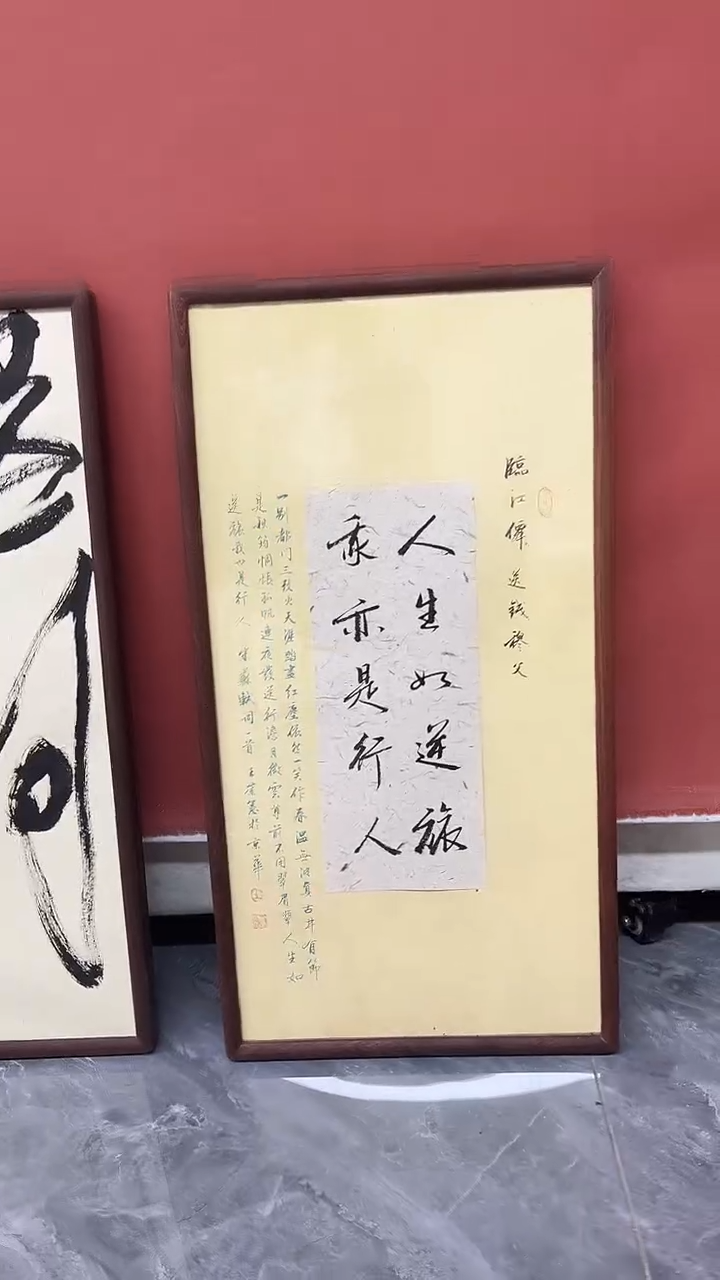 臨江僊 送錢穆父
人生如逆旅
我亦是行人
一别都门三改火天涯踏盡红塵依然一笑作春温無波真古井有節
是秋筠惆悵孤帆連夜發送行淡月微雲尊前不用翠眉颦人生如
逆旅我亦是行人 宋蘇軾词一首 王於京華